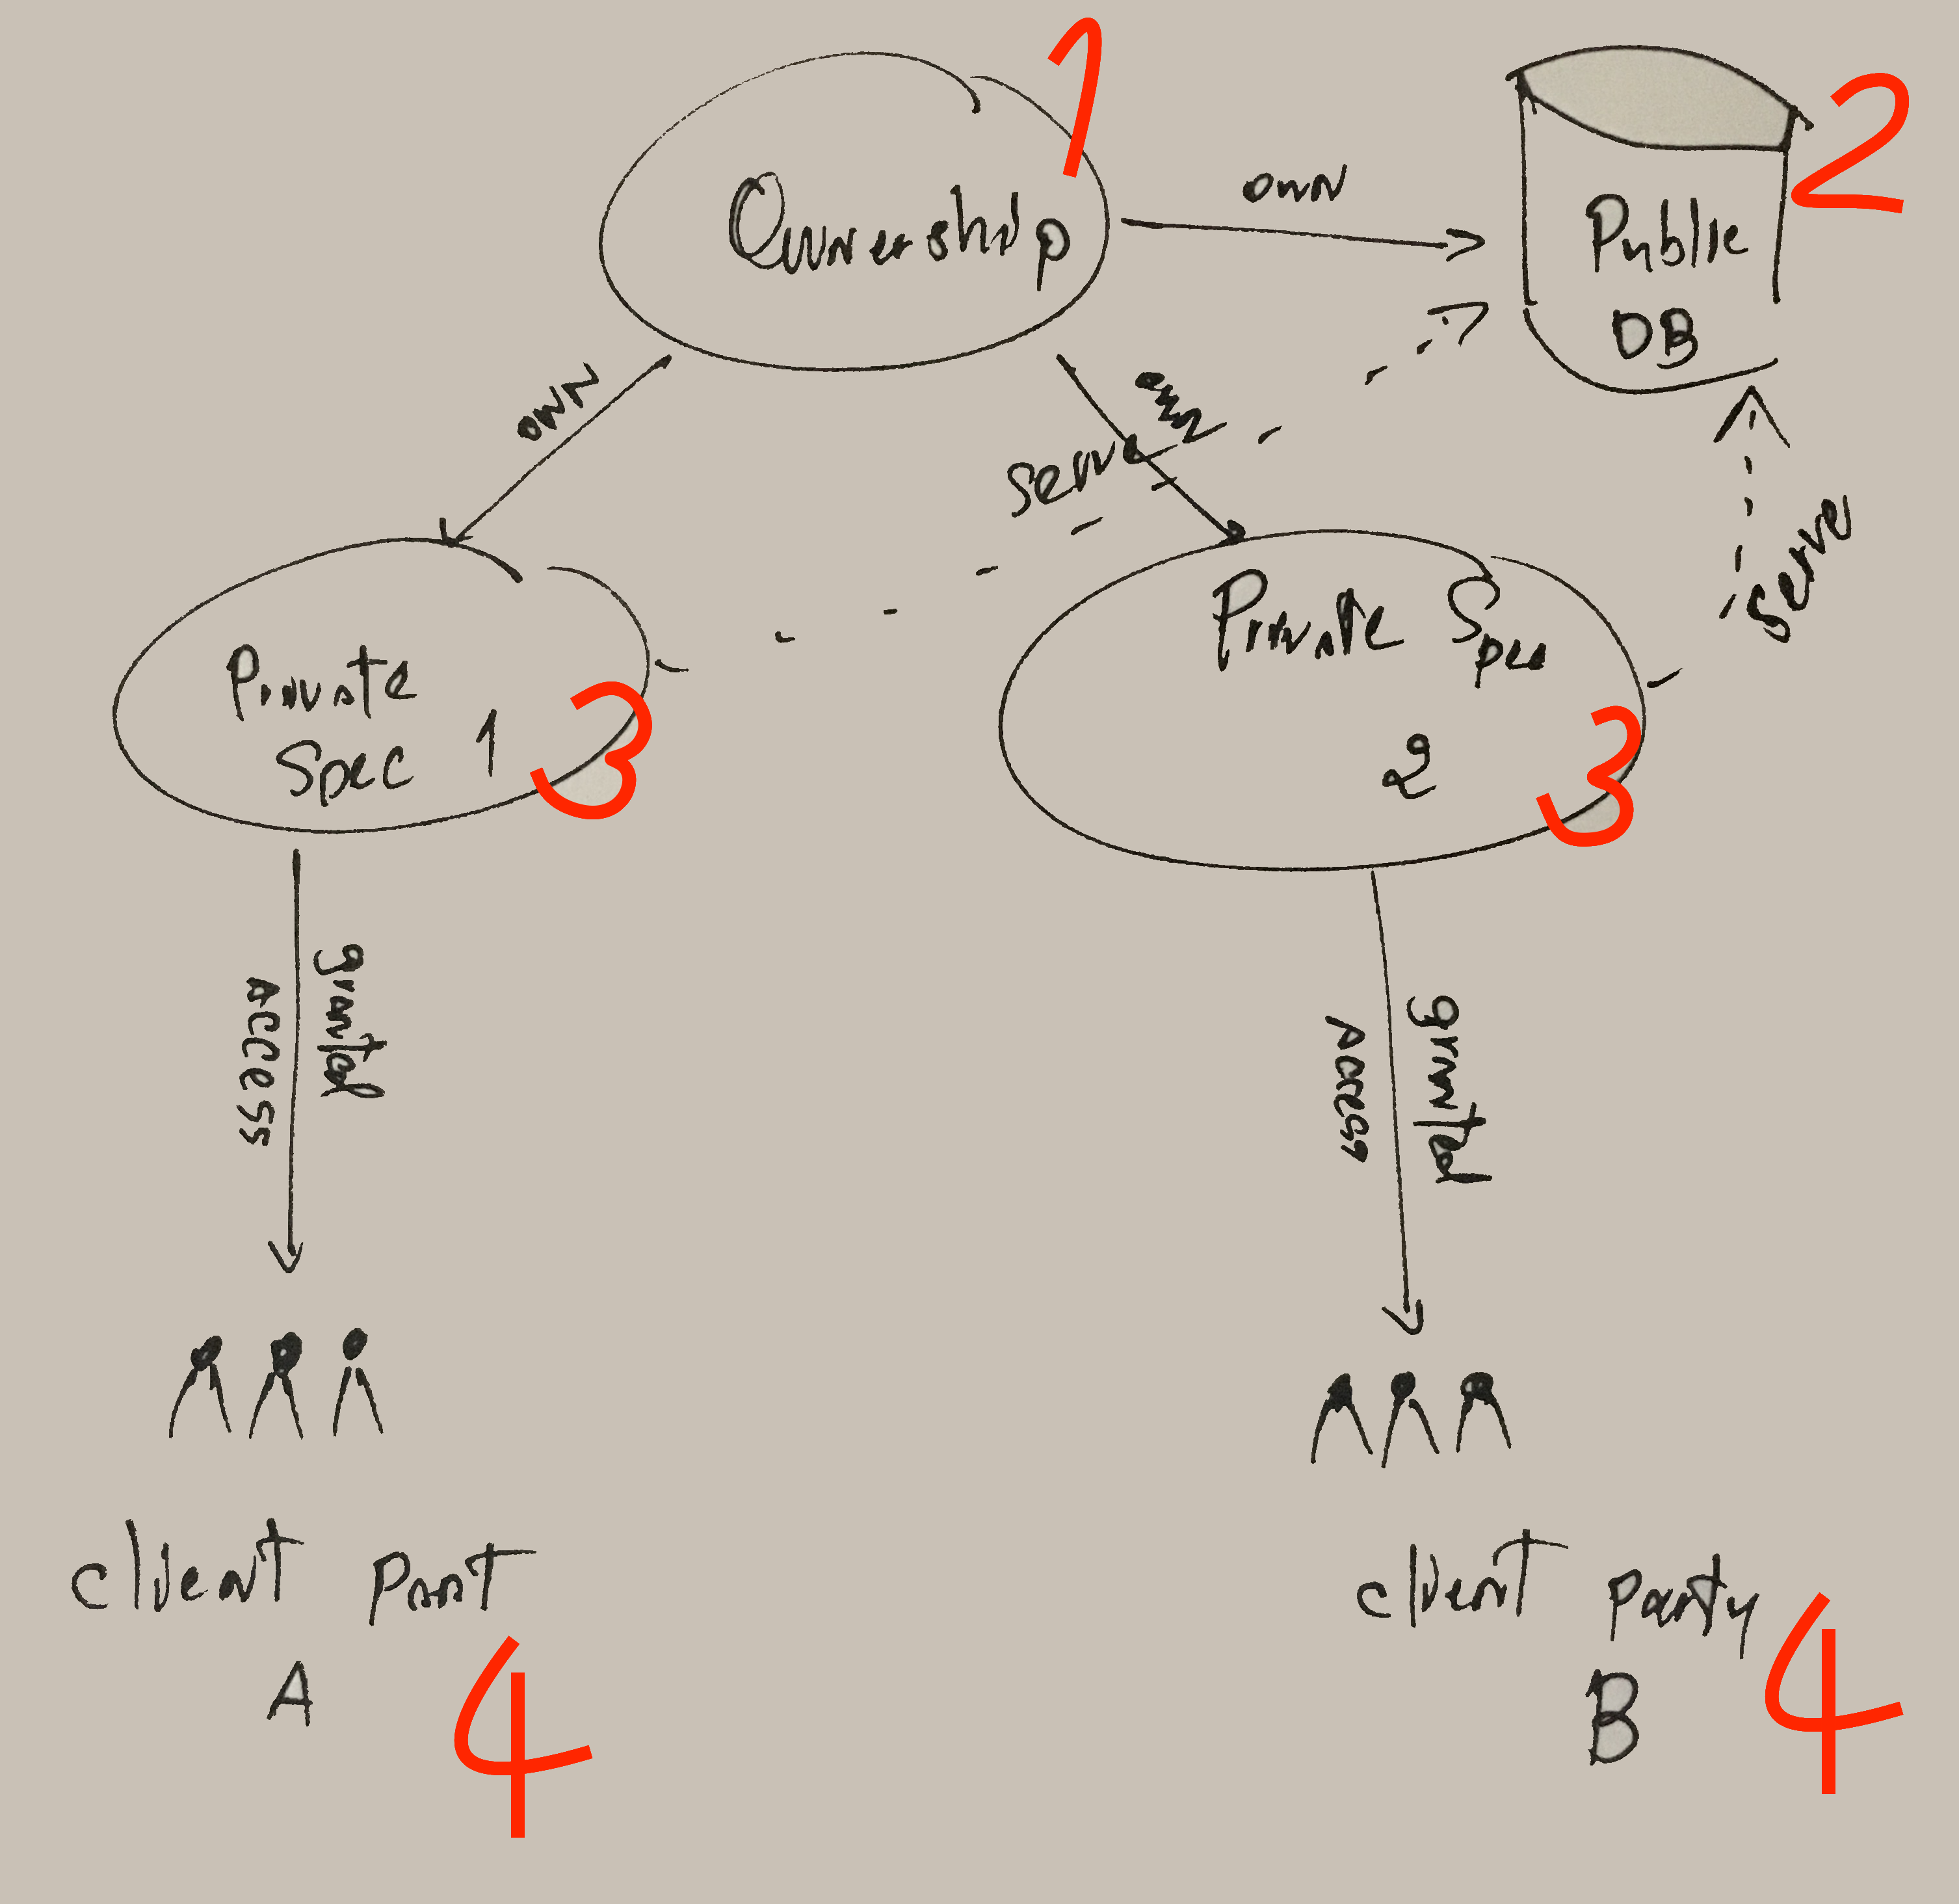 1
Ownership
2
own
Public
DB
own
own
serve
serve
Private
Spec 1
3
Private Spec
2
3
granted
access
granted
access
client Part
A
4
client party
B
4